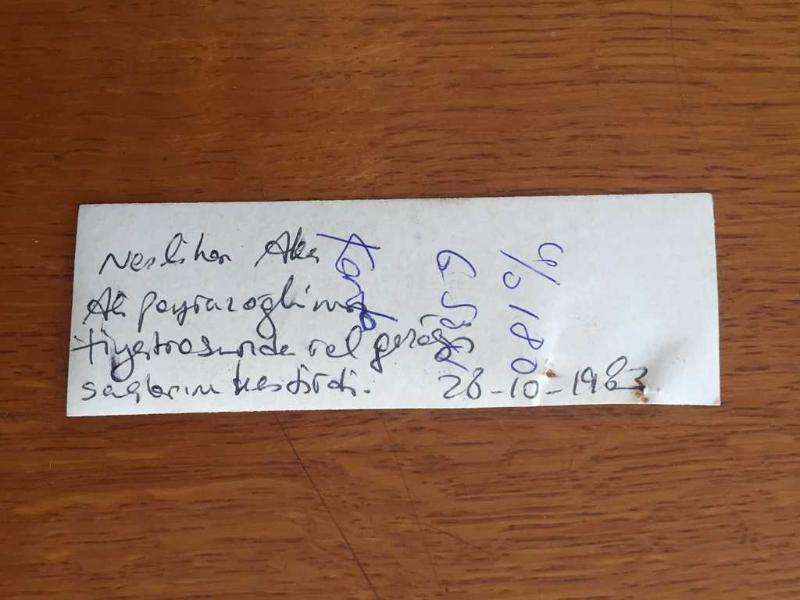 Neslihan Aka
Ali poyrazoglunun
tiyatrosunda rol gereği
saçlarını kestirdi.
28-10-1983
% 180